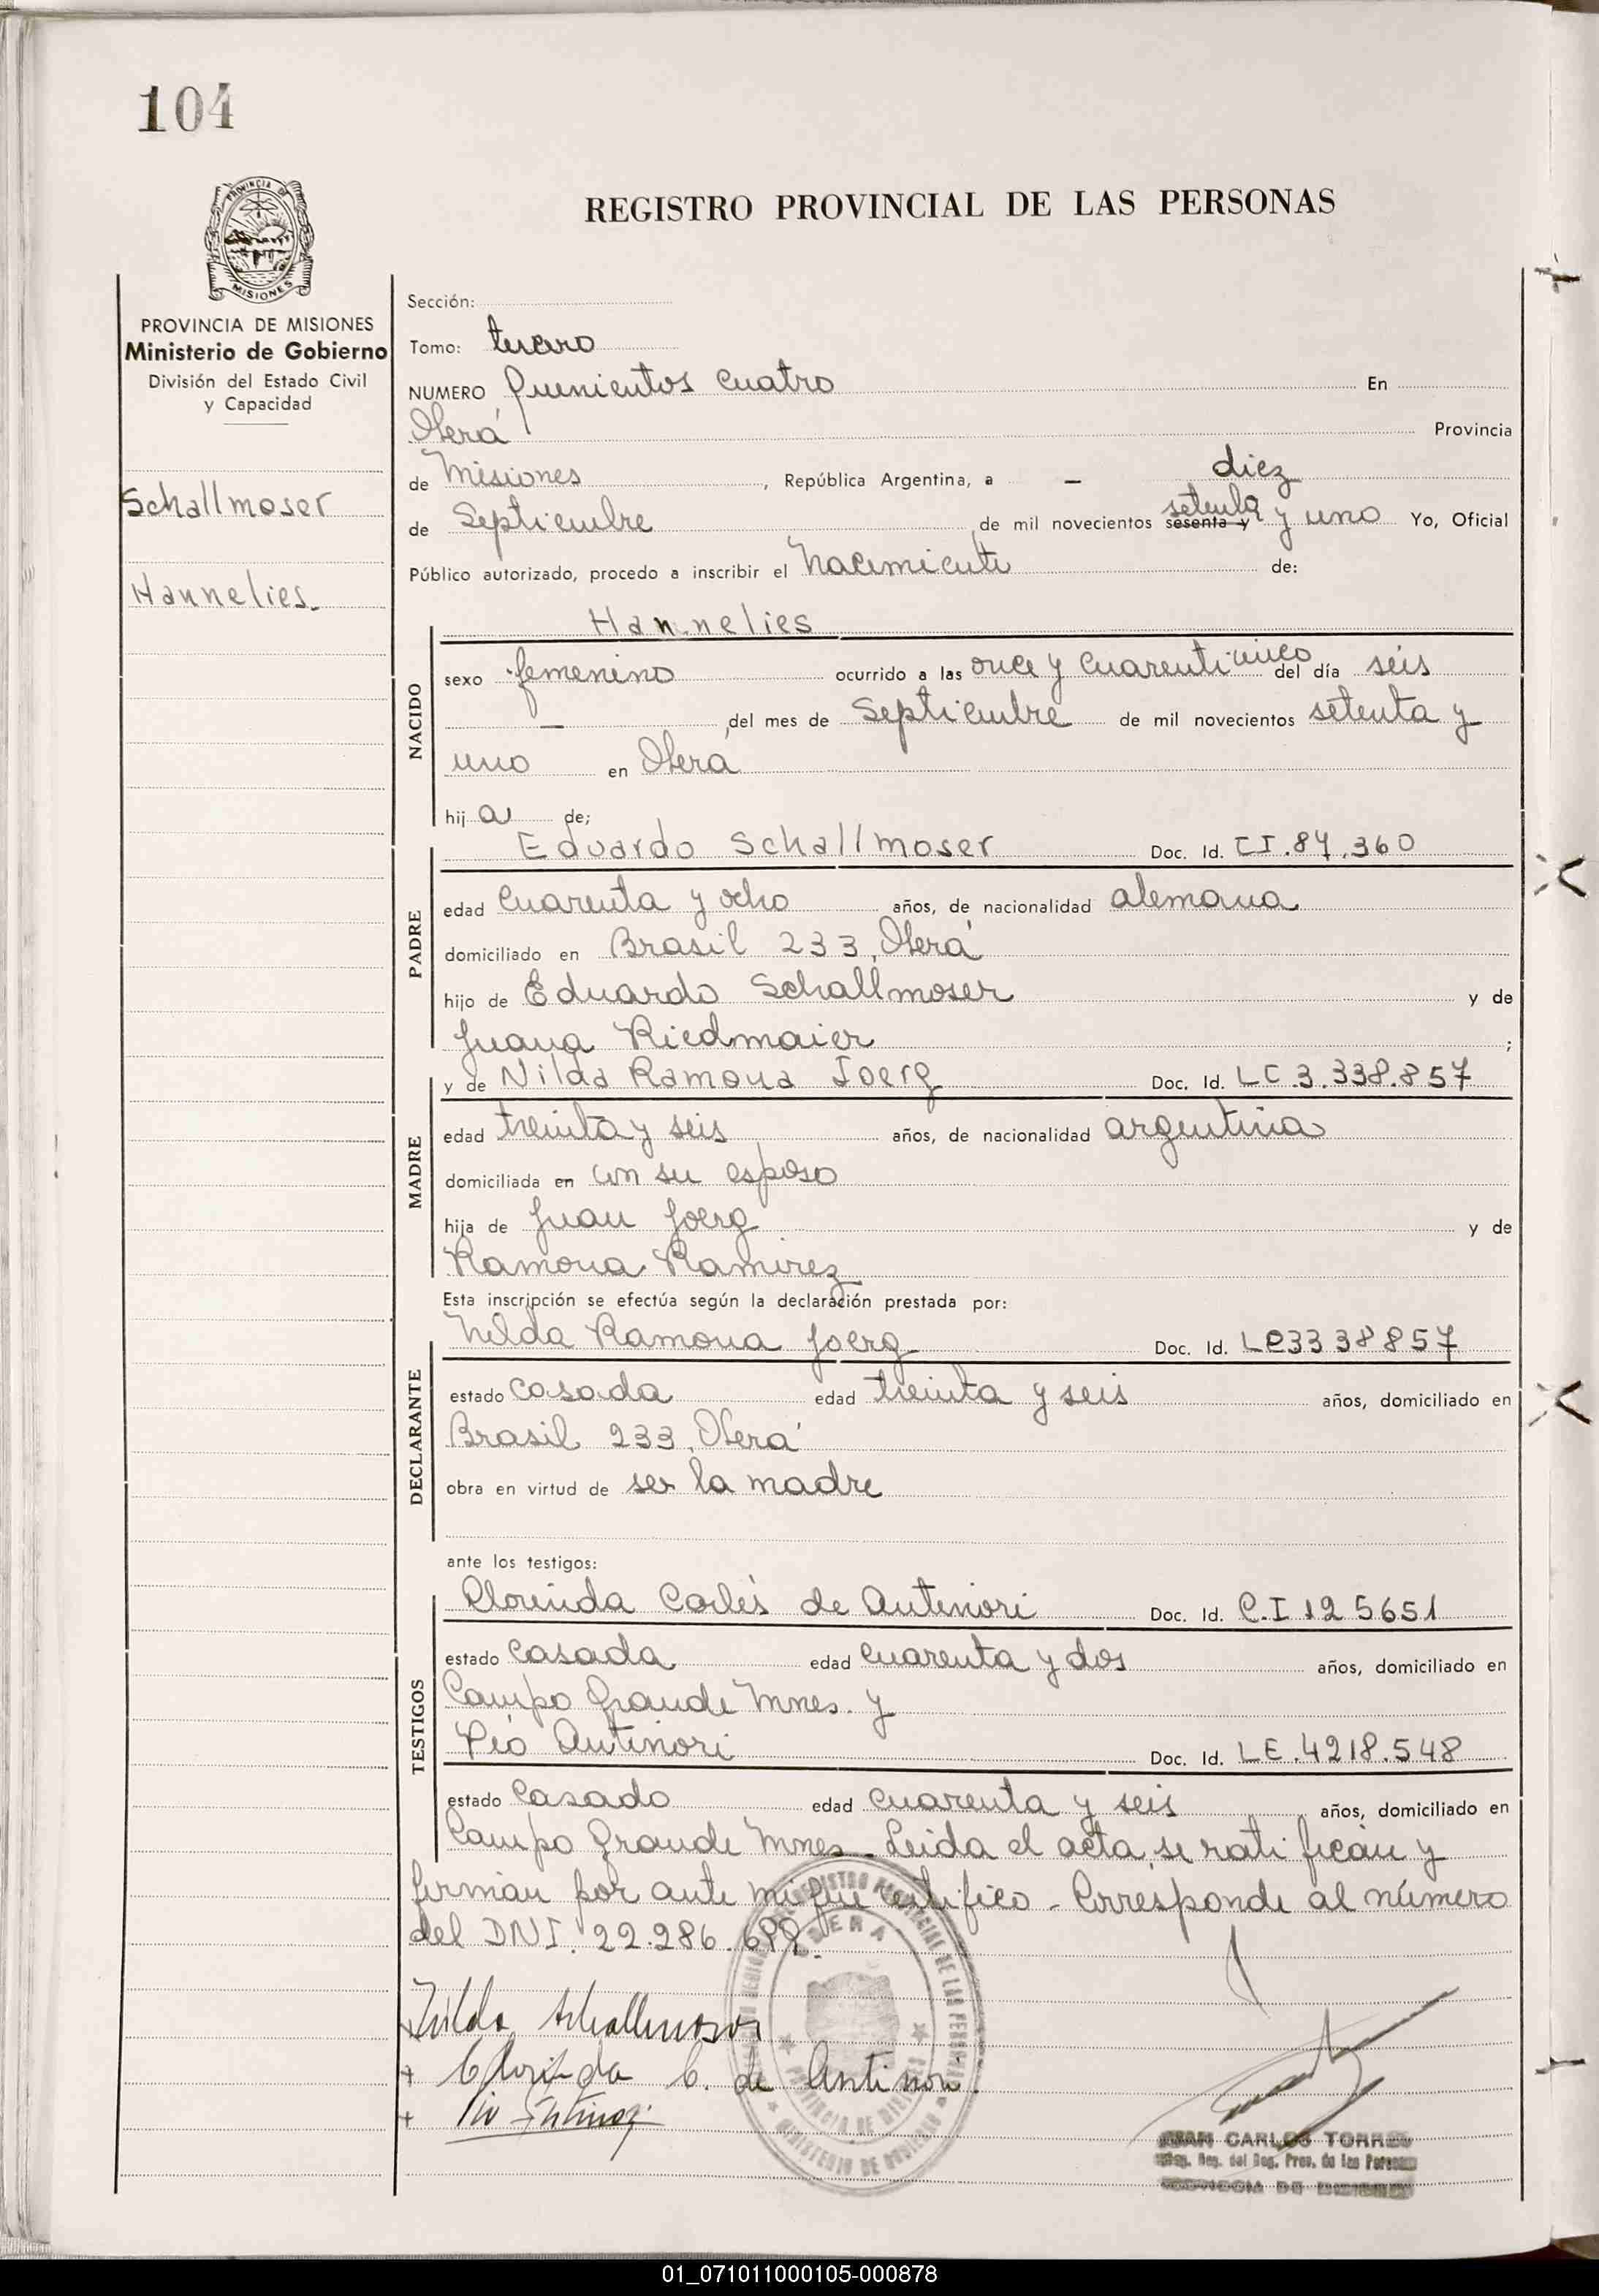 104
PROVINCIA DE
MISIONES
REGISTRO PROVINCIAL DE LAS PERSONAS
PROVINCIA DE MISIONES
Ministerio de Gobierno
División del Estado Civil
y Capacidad
Schallmoser
Hannelies.
Sección:
Tomo: tercero
NUMERO Quinientos cuatro En
Oberá Provincia
de Misiones, República Argentina, a - diez
de Septiembre de mil novecientos sesenta y setenta y uno Yo, Oficial
Público autorizado, procedo a inscribir el Nacimiento de:
Hannelies
NACIDO
sexo femenino ocurrido a las once y cuarenticinco del día seis
- del mes de Septiembre de mil novecientos setenta y
uno en Oberá
hija de;
Eduardo Schallmoser Doc. Id. CI.84.360
PADRE
edad cuarenta y ocho años, de nacionalidad alemana
domiciliado en Brasil 233, Oberá
hijo de Eduardo Schallmoser y de
Juana Riedmaier ;
y de Nilda Ramona Joerg Doc. Id. LC 3.338.857
MADRE
edad treinta y seis años, de nacionalidad argentina
domiciliada en con su esposo
hija de Juan Joerg y de
Ramona Ramirez
Esta inscripción se efectúa según la declaración prestada por:
Nilda Ramona Joerg Doc. Id. LC3338857
DECLARANTE
estado casada edad treinta y seis años, domiciliado en
Brasil 233, Oberá
obra en virtud de ser la madre
ante los testigos:
Clorinda Carlés de Antinori Doc. Id. C.I 125651
TESTIGOS
estado casada edad cuarenta y dos años, domiciliado en
Campo Grande Mnes. y
Pío Antinori Doc. Id. LE.4218.548
estado casado edad cuarenta y seis años, domiciliado en
Campo Grande Mnes. Leida el acta, se ratifican y
firman por ante mi que certifico - Corresponde al número
del DNI. 22.286.
Nilda Schallmoser
+ Clorinda C. de Antinori.
+ Pio Antinori
OBERA
PROVINCIA DE MISIONES
MINISTERIO DE GOBIERNO
JUAN CARLOS TORRES
Reg. del Reg. Prov. de las Personas
01_071011000105-000878